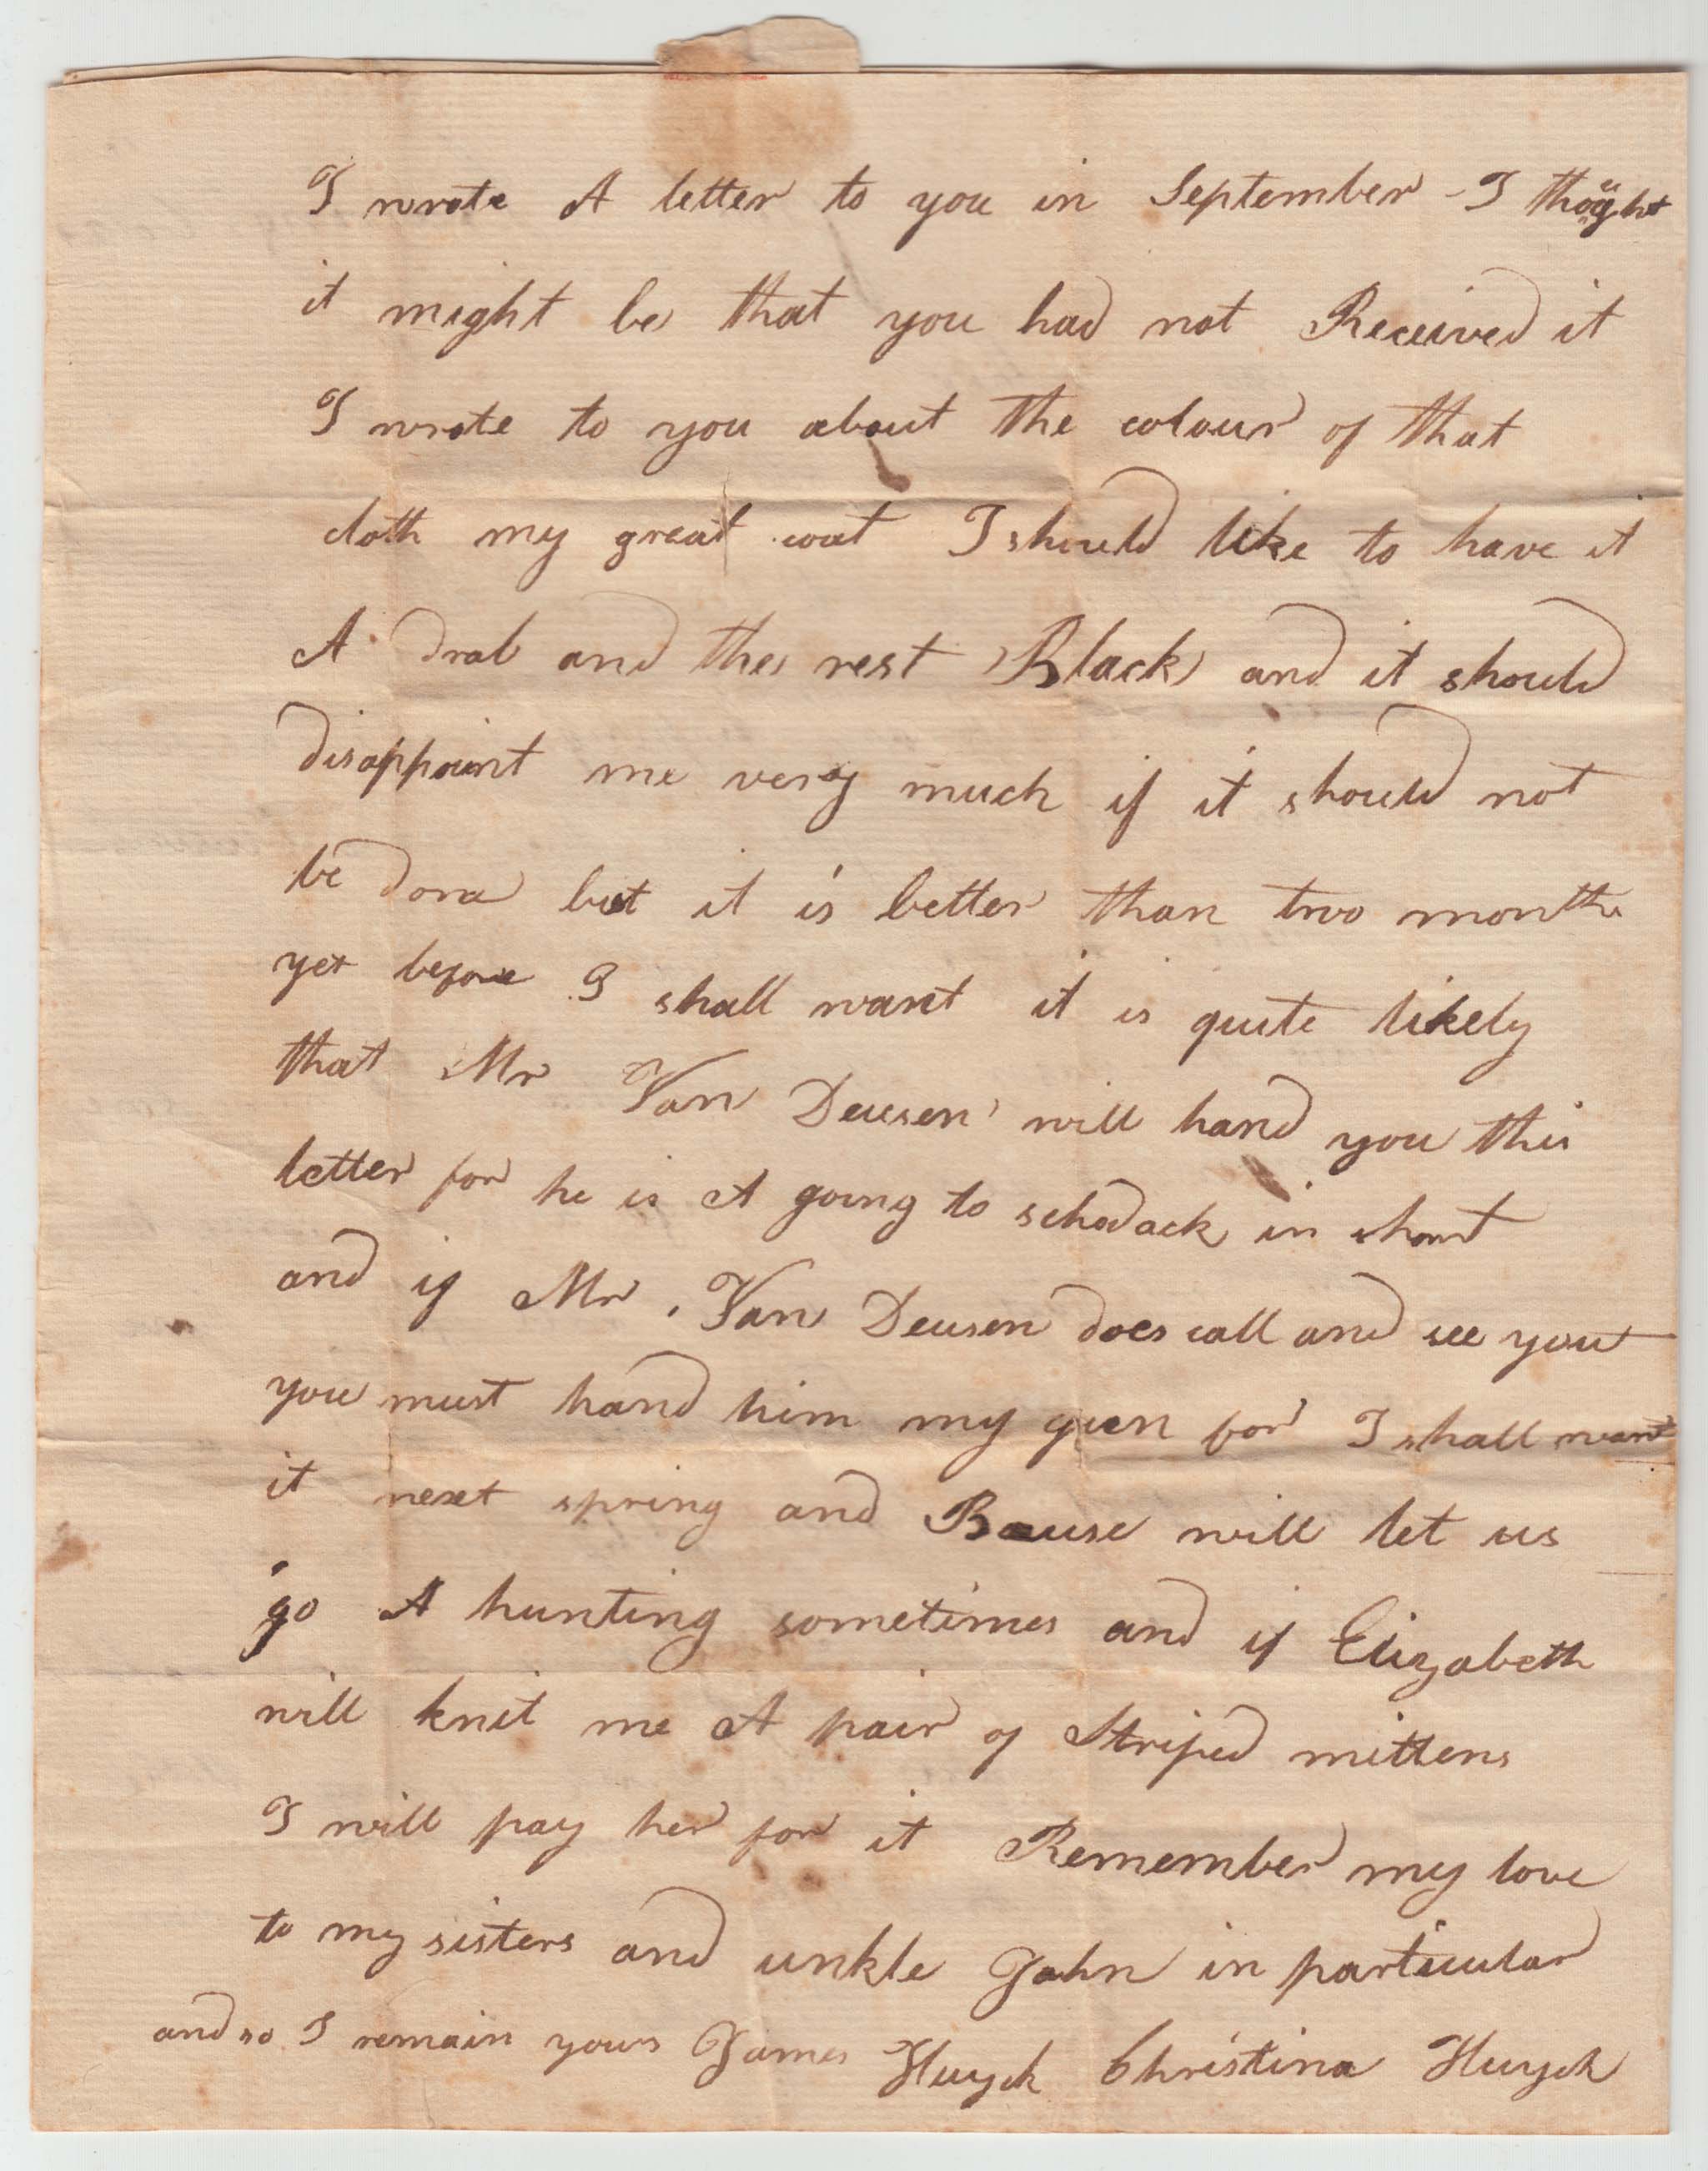 I wrote A letter to you in September - I thought
it might be that you had not Received it
I wrote to you about the colour of that
cloth my great coat I should like to have it
A drab and the rest Black and it should
disappoint me very much if it should not
be done but it is better than two months
yet before I shall want it is quite likely
that Mr Van Deusen will hand you this
letter for he is A going to schodack in short
and if Mr. Van Deusen does call and see you
you must hand him my gun for I shall want
it next spring and Bause will let us
go A hunting sometimes and if Elizabeth
will knit me A pair of Striped mittens
I will pay her for it Remember my love
to my sisters and unkle John in particular
and so I remain yours James Huyck Christina Huyck